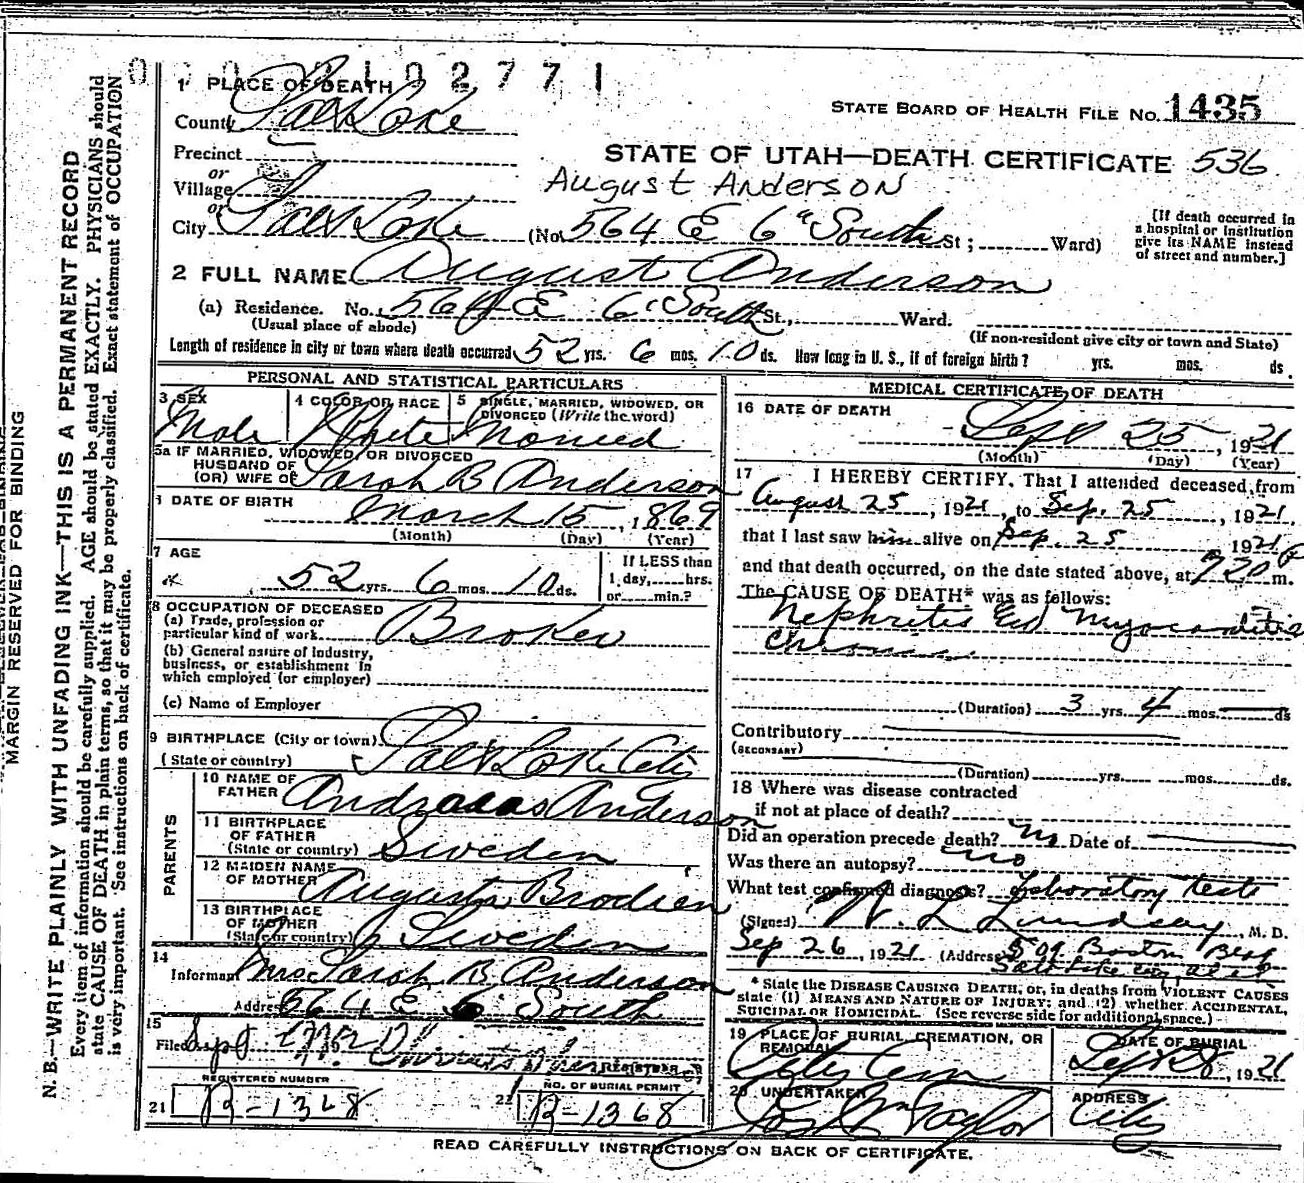 1 PLACE OF DEATH
County Salt Lake
STATE BOARD OF HEALTH FILE No. 1435
Precinct
or
STATE OF UTAH—DEATH CERTIFICATE 536
Village
or
August Anderson
City Salt Lake (No. 564 E 6" South St; Ward)
[If death occurred in
a hospital or institution
give its NAME instead
of street and number.]
2 FULL NAME August Anderson
(a) Residence. No. 564 E 6" South St., Ward.
(Usual place of abode)
(If non-resident give city or town and State)
Length of residence in city or town where death occurred 52 yrs. 6 mos. 10 ds. How long in U. S., if of foreign birth? yrs. mos. ds.
PERSONAL AND STATISTICAL PARTICULARS
3 SEX
Male
4 COLOR OR RACE
White
5 SINGLE, MARRIED, WIDOWED, OR
DIVORCED (Write the word)
5a IF MARRIED, WIDOWED, OR DIVORCED
HUSBAND OF
(OR) WIFE OF Sarah B Anderson
6 DATE OF BIRTH
March 15, 1869
(Month) (Day) (Year)
7 AGE
52 yrs. 6 mos. 10 ds.
If LESS than
1 day, hrs.
or min.?
8 OCCUPATION OF DECEASED
(a) Trade, profession or
particular kind of work Broker
(b) General nature of Industry,
business, or establishment in
which employed (or employer)
(c) Name of Employer
9 BIRTHPLACE (City or town)
(State or country) Salt Lake City
PARENTS
10 NAME OF
FATHER Andreas Anderson
11 BIRTHPLACE
OF FATHER
(State or country) Sweden
12 MAIDEN NAME
OF MOTHER Augusta Brodien
13 BIRTHPLACE
OF MOTHER
(State or country) Sweden
14
Informant Mrs. Sarah B. Anderson
Address 564 E 6 South
15
Filed
REGISTRAR
REGISTERED NUMBER
21 R-1368
NO. OF BURIAL PERMIT
22 R-1368
MEDICAL CERTIFICATE OF DEATH
16 DATE OF DEATH
Sept 25, 1921
(Month) (Day) (Year)
17 I HEREBY CERTIFY, That I attended deceased from
August 25, 1921, to Sep. 25, 1921,
that I last saw him alive on Sep. 25 1921
and that death occurred, on the date stated above, at 720 P m.
The CAUSE OF DEATH* was as follows:
Nephritis Myocarditis
Chronic
(Duration) 3 yrs. 4 mos. ds
Contributory
(SECONDARY)
(Duration) yrs. mos. ds.
18 Where was disease contracted
if not at place of death?
Did an operation precede death? No Date of
Was there an autopsy? no
What test confirmed diagnosis? Laboratory tests
(Signed) W. L. Lindsay, M. D.
Sep 26, 1921 (Address) 509 Boston Bldg
Salt Lake City, Utah
* State the DISEASE CAUSING DEATH, or, in deaths from VIOLENT CAUSES
state (1) MEANS AND NATURE OF INJURY; and (2) whether ACCIDENTAL,
SUICIDAL OR HOMICIDAL. (See reverse side for additional space.)
19 PLACE OF BURIAL, CREMATION, OR
REMOVAL
City Cem
DATE OF BURIAL
Sept 28, 1921
20 UNDERTAKER
Jos. Wm Taylor
ADDRESS
City
READ CAREFULLY INSTRUCTIONS ON BACK OF CERTIFICATE.
MARGIN RESERVED FOR BINDING
N. B.—WRITE PLAINLY WITH UNFADING INK—THIS IS A PERMANENT RECORD
Every item of information should be carefully supplied. AGE should be stated EXACTLY. PHYSICIANS should
state CAUSE OF DEATH in plain terms, so that it may be properly classified. Exact statement of OCCUPATION
is very important. See instructions on back of certificate.